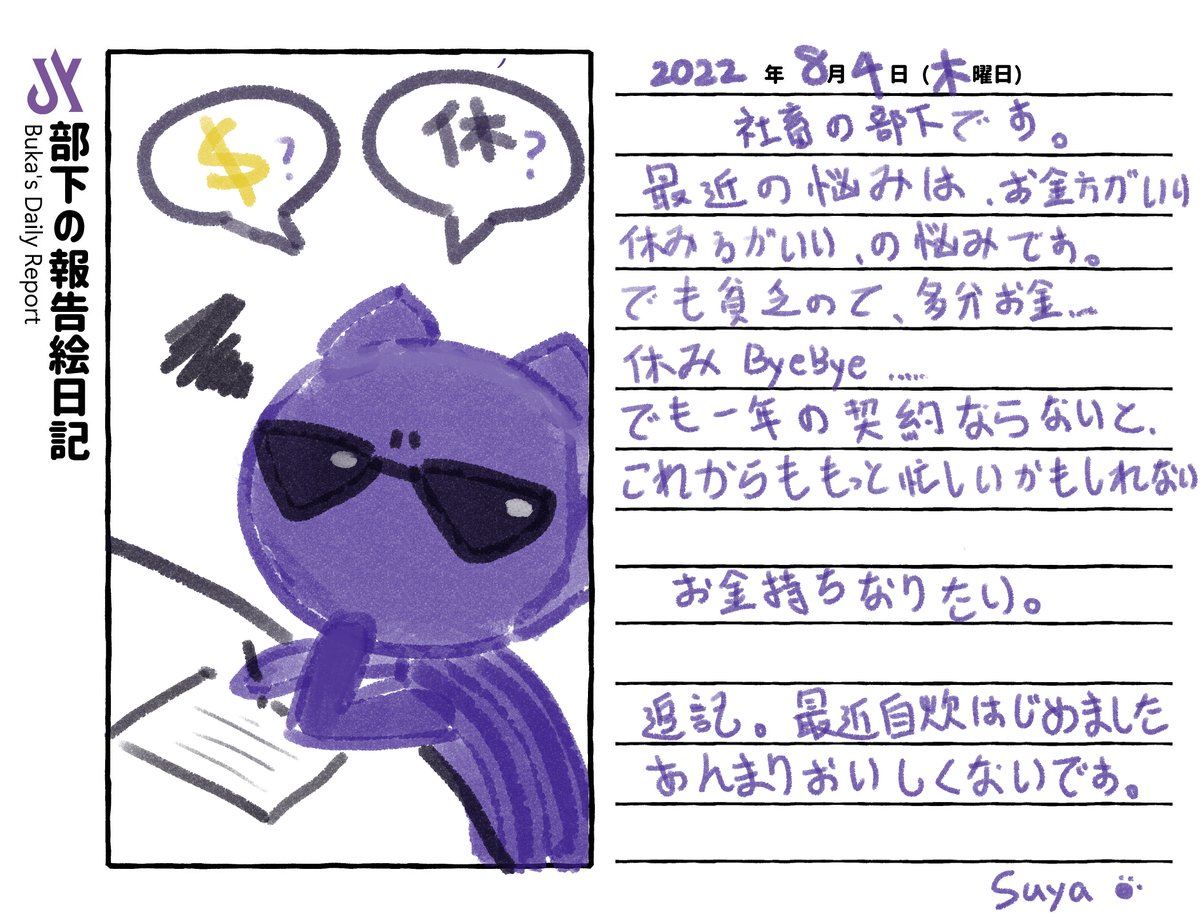 部下の報告絵日記
Buka's Daily Report
$?
休?
2022年8月4日(木曜日)
社畜の部下です。
最近の悩みは、お金方がいい
休み方がいい、の悩みです。
でも貧乏ので、多分お金...
休み ByeBye ......
でも一年の契約ならないと、
これからももっと忙しいかもしれない
お金持ちなりたい。
追記。最近自炊はじめました
あんまりおいしくないです。
Suya